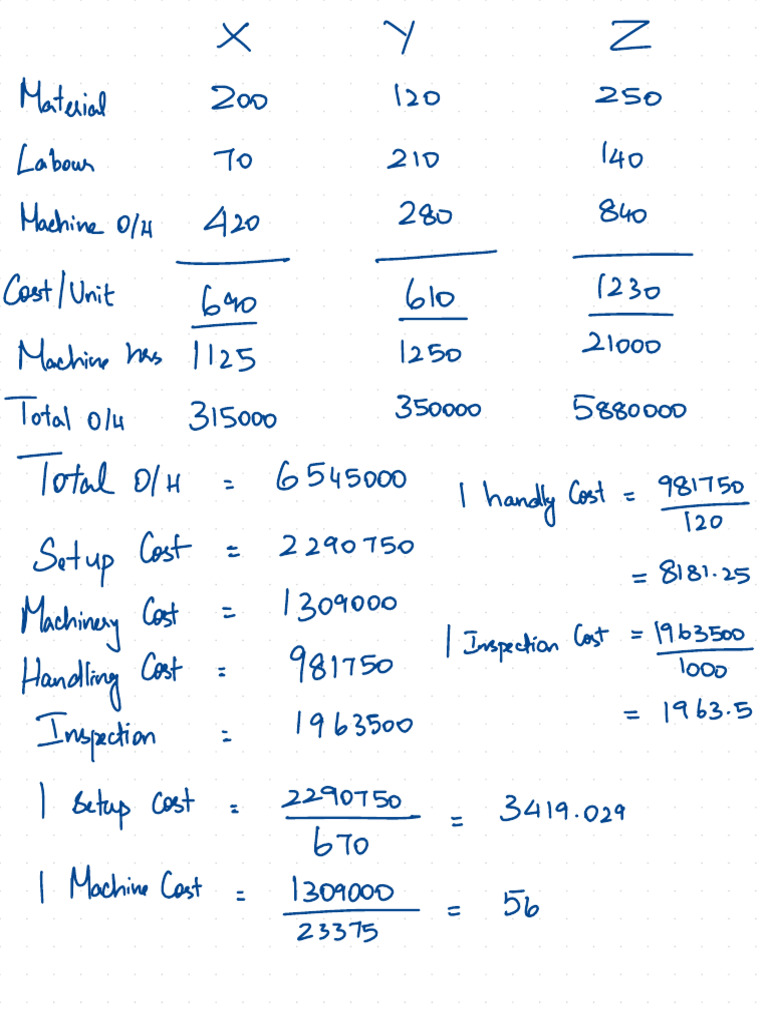 X Y Z
Material 200 120 250
Labour 70 210 140
Machine O/H 420 280 840
Cost/Unit 690 610 1230
Machine hrs 1125 1250 21000
Total O/H 315000 350000 5880000
Total O/H = 6545000
Setup Cost = 2290750
Machinery Cost = 1309000
Handling Cost = 981750
Inspection = 1963500
1 handly Cost = 981750
120
= 8181.25
1 Inspection Cost = 1963500
1000
= 1963.5
1 Setup Cost = 2290750 = 3419.029
670
1 Machine Cost = 1309000 = 56
23375